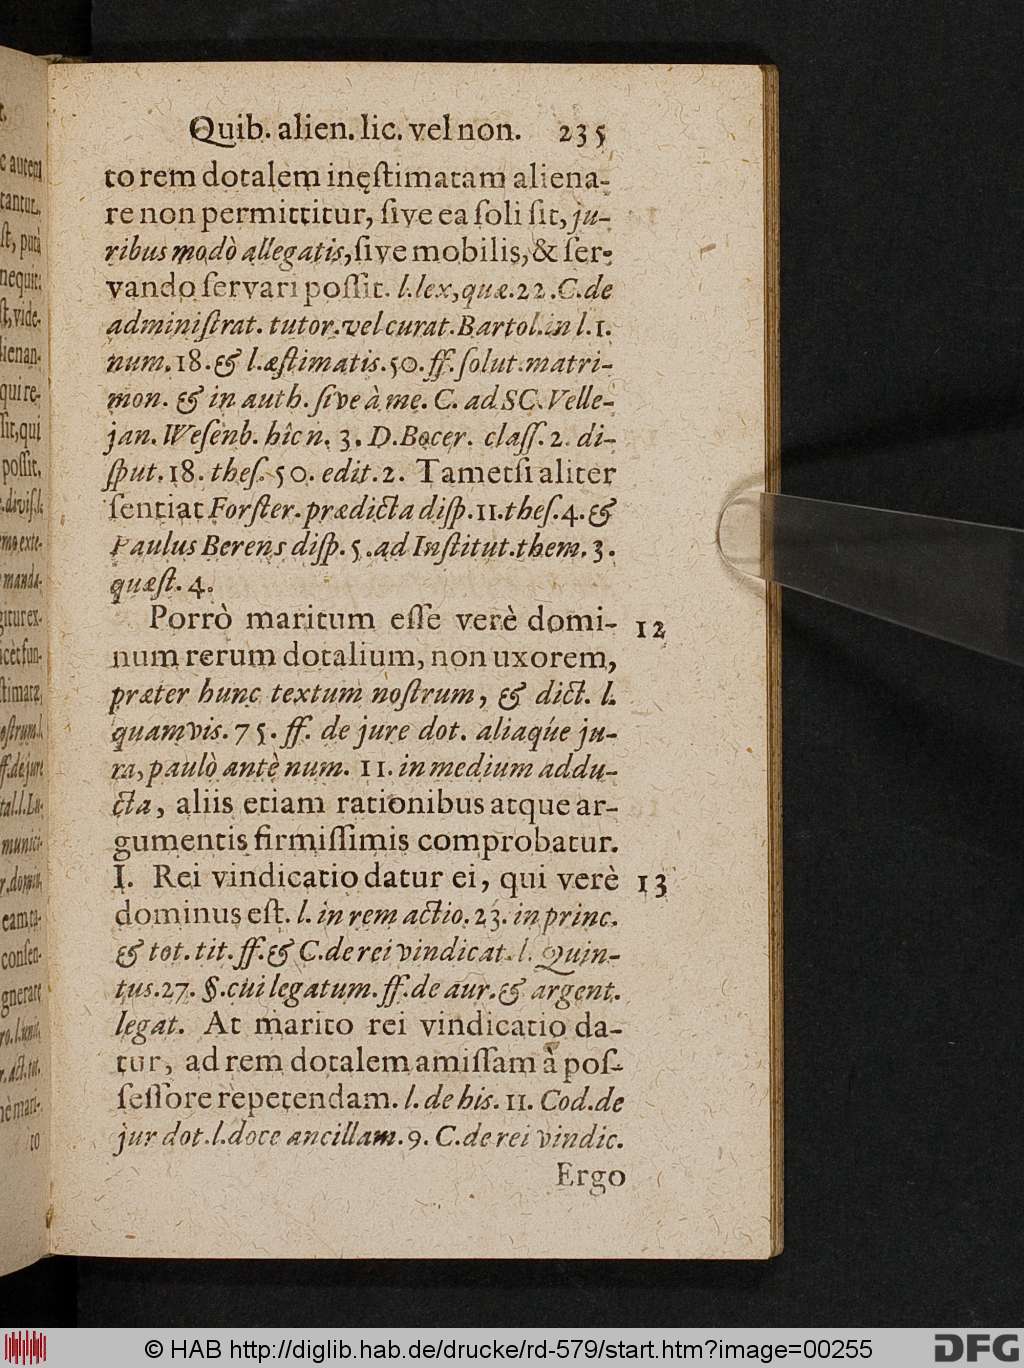 Quib. alien. lic. vel non. 235
to rem dotalem inęſtimatam aliena-
re non permittitur, ſive ea ſoli ſit, ju-
ribus modò allegatis, ſive mobilis, & ſer-
vando ſervari poſſit. l. lex, quæ. 22. C. de
adminiſtrat. tutor. vel curat. Bartol. in l. 1.
num. 18. & l. æſtimatis. 50. ff. ſolut. matri-
mon. & in auth. ſive à me. C. ad SC. Velle-
jan. Weſenb. hîc n. 3. D. Bocer. claſſ. 2. di-
ſput. 18. theſ. 50. edit. 2. Tametſi aliter
ſentiat Forſter. prædicta diſp. 11. theſ. 4. &
Paulus Berens diſp. 5. ad Inſtitut. them. 3.
quæſt. 4.
Porrò maritum eſſe verè domi- 12
num rerum dotalium, non uxorem,
præter hunc textum noſtrum, & dict. l.
quamvis. 75. ff. de jure dot. aliaqúe ju-
ra, paulò antè num. 11. in medium addu-
cta, aliis etiam rationibus atque ar-
gumentis firmiſſimis comprobatur.
I. Rei vindicatio datur ei, qui verè 13
dominus eſt. l. in rem actio. 23. in princ.
& tot. tit. ff. & C. de rei vindicat. l. Quin-
tus. 27. §. cui legatum. ff. de aur. & argent.
legat. At marito rei vindicatio da-
tur, ad rem dotalem amiſſam à poſ-
ſeſſore repetendam. l. de his. 11. Cod. de
jur dot. l. doce ancillam. 9. C. de rei vindic.
Ergo
© HAB http://diglib.hab.de/drucke/rd-579/start.htm?image=00255
DFG